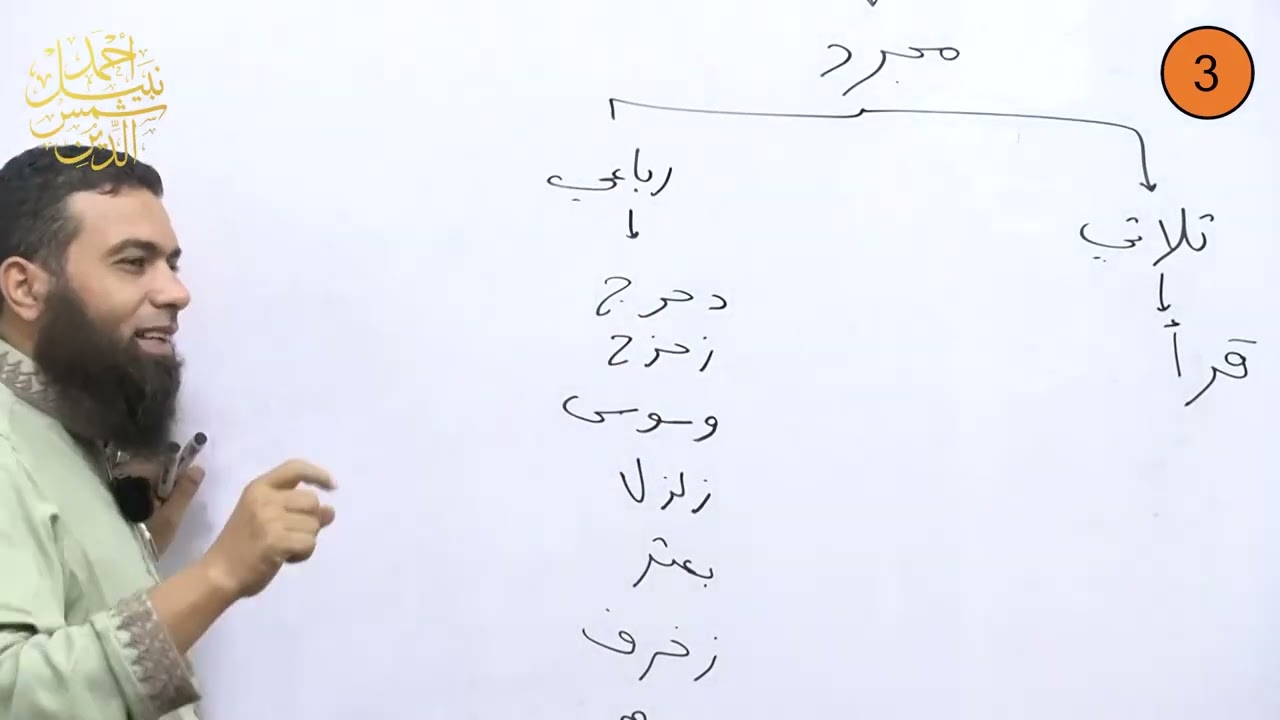 أحمد
نبيل
شمس
الدين
3
مجرد
ثلاثي
رباعي
قرأ
دحرج
زحزح
وسوس
زلزل
بعثر
زخرف